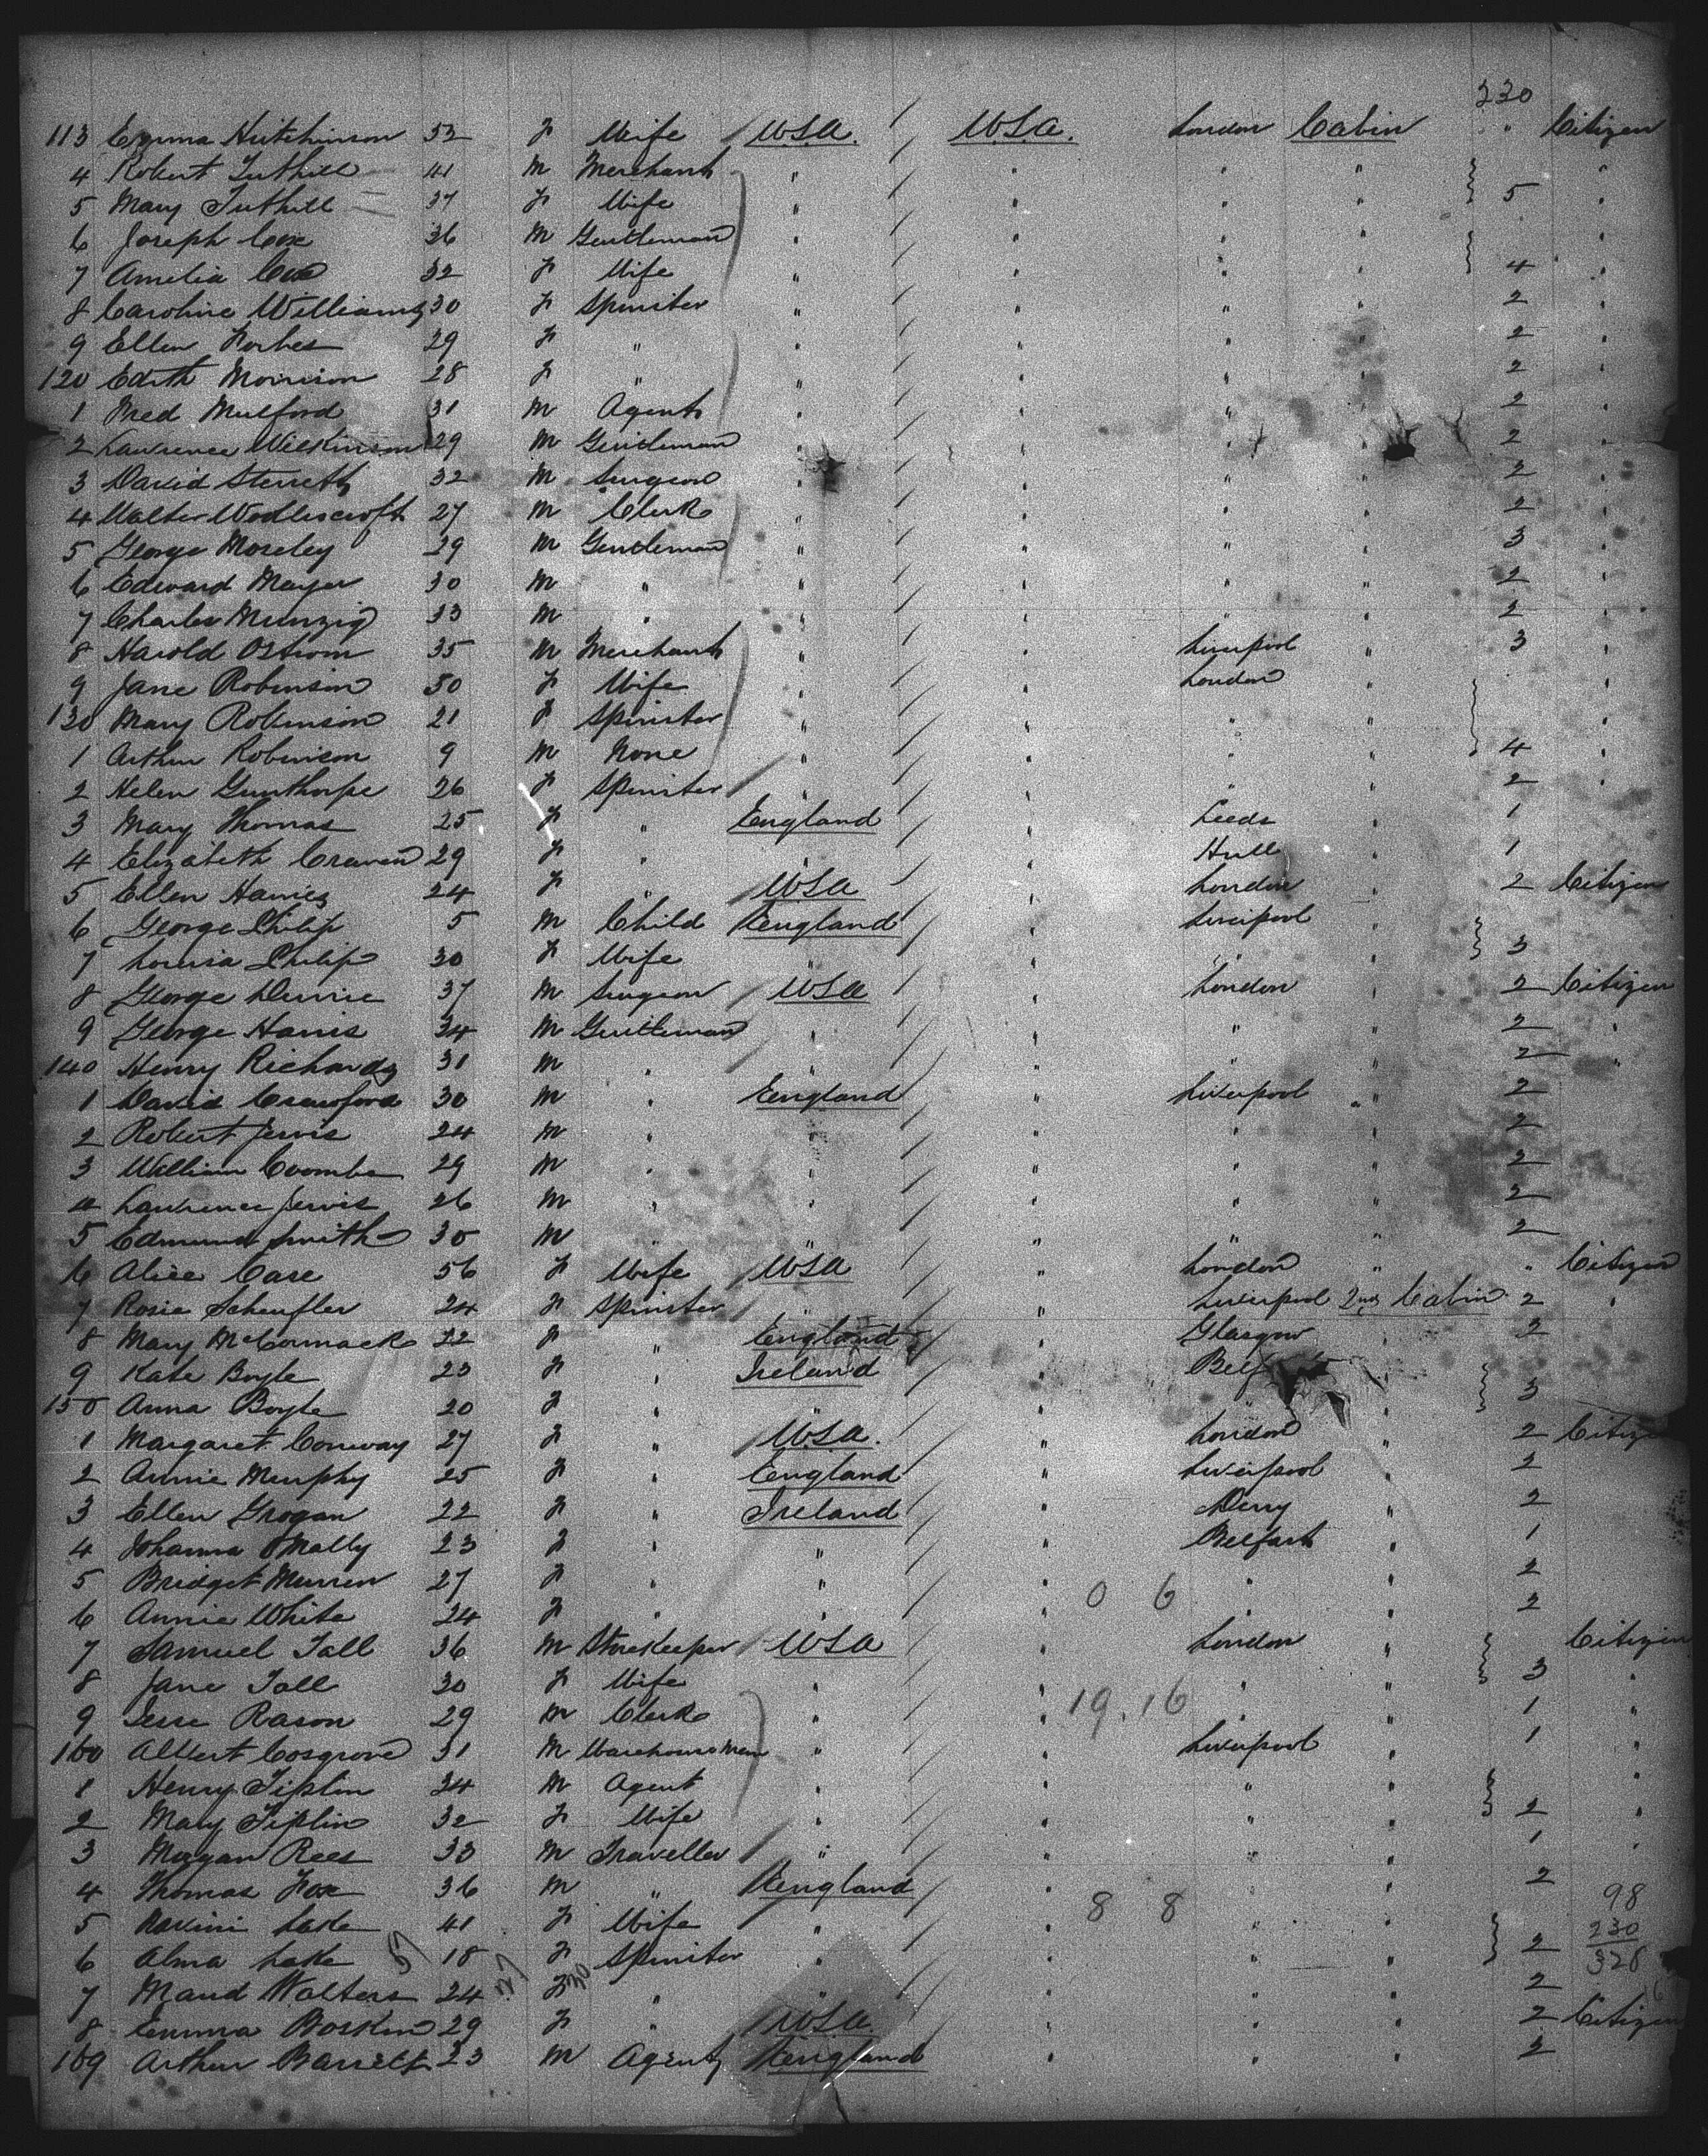 230
113 Emma Hutchinson 52 F Wife U.S.A. U.S.A. London Cabin " Citizen
4 Robert Tuthill 41 M Merchant " " " " "
5 Mary Tuthill 37 F Wife " " " " 5 "
6 Joseph Cox 36 M Gentleman " " " " "
7 Amelia Cox 32 F Wife " " " " 4 "
8 Caroline Williams 30 F Spinster " " " " 2 "
9 Ellen Forbes 29 F " " " " " 2 "
120 Edith Morrison 28 F " " " " " 2 "
1 Fred Mulford 31 M Agent " " " " 2 "
2 Lawrence Wilkinson 29 M Gentleman " " " " 2 "
3 David Sterrett 32 M Surgeon " " " " 2 "
4 Walter 27 M Clerk " " " " 2 "
5 George Moseley 29 M Gentleman " " " " 3 "
6 Edward Mayer 30 M " " " " " 2 "
7 Charles Munzig 33 M " " " " " 2 "
8 Harold Ostrom 35 M Merchant " " Liverpool " 3 "
9 Jane Robinson 50 F Wife " " London " "
130 Mary Robinson 21 F Spinster " " " " "
1 Arthur Robinson 9 M None " " " " 4 "
2 Helen Gunthorpe 26 F Spinster " " " " 2 "
3 Mary Thomas 25 F " England " Leeds " 1
4 Elizabeth Craven 29 F " " " Hull " 1
5 Ellen Haines 24 F " USA " London " 2 Citizen
6 George Philip 5 M Child England " Liverpool "
7 Louisa Philip 30 F Wife " " " " 3
8 George 37 M Surgeon USA " London " 2 Citizen
9 George Harris 34 M Gentleman " " " " 2 "
140 Henry Richards 31 M " " " " " 2 "
1 David Crawford 30 M " England " Liverpool " 2
2 Robert Jervis 24 M " " " " " 2
3 William Coombs 29 M " " " " " 2
4 Lawrence Jervis 26 M " " " " " 2
5 Edmund Smith 30 M " " " " " 2
6 Alice Case 56 F Wife USA " London " " Citizen
7 Rosie Scheufler 24 F Spinster " " Liverpool 2nd Cabin 2 "
8 Mary McCormack 22 F " England " Glasgow " 2
9 Kate Boyle 23 F " Ireland " Belf "
150 Anna Boyle 20 F " " " " " 3
1 Margaret Conway 27 F " U.S.A. " London " 2 Citize
2 Annie Murphy 25 F " England " Liverpool " 2
3 Ellen Grogan 22 F " Ireland " Derry " 2
4 Johanna OMally 23 F " " " Belfast " 1
5 Bridget 27 F " " " " " 2
0 6
6 Annie White 24 F " " " " " 2
7 Samuel Tall 36 M Storekeeper USA " London " Citizen
8 Jane Tall 30 F Wife " " " " 3 "
19.16
9 Jesse Rason 29 M Clerk " " " " 1 "
160 Albert Cosgrove 31 M Warehouseman " " Liverpool " 1 "
1 Henry Tiplin 34 M Agent " " " " "
2 Mary Tiplin 32 F Wife " " " " 2 "
3 Morgan Rees 33 M Traveller " " " " 1 "
4 Thomas Fox 36 M " England " " " 2
8 8
98
5 Lake 41 F Wife " " " "
230
6 Alma Lake 18 F Spinster " " " " 2
328
7 Maud Walters 24 F " " " " " 2
8 Emma Boskin 29 F " USA " " " 2 Citizen
169 Arthur Barrett 23 M Agent England " " " 2